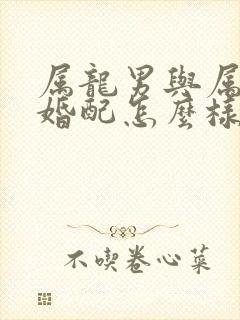 属龍男與属
婚配怎麼樣
不喫卷心菜